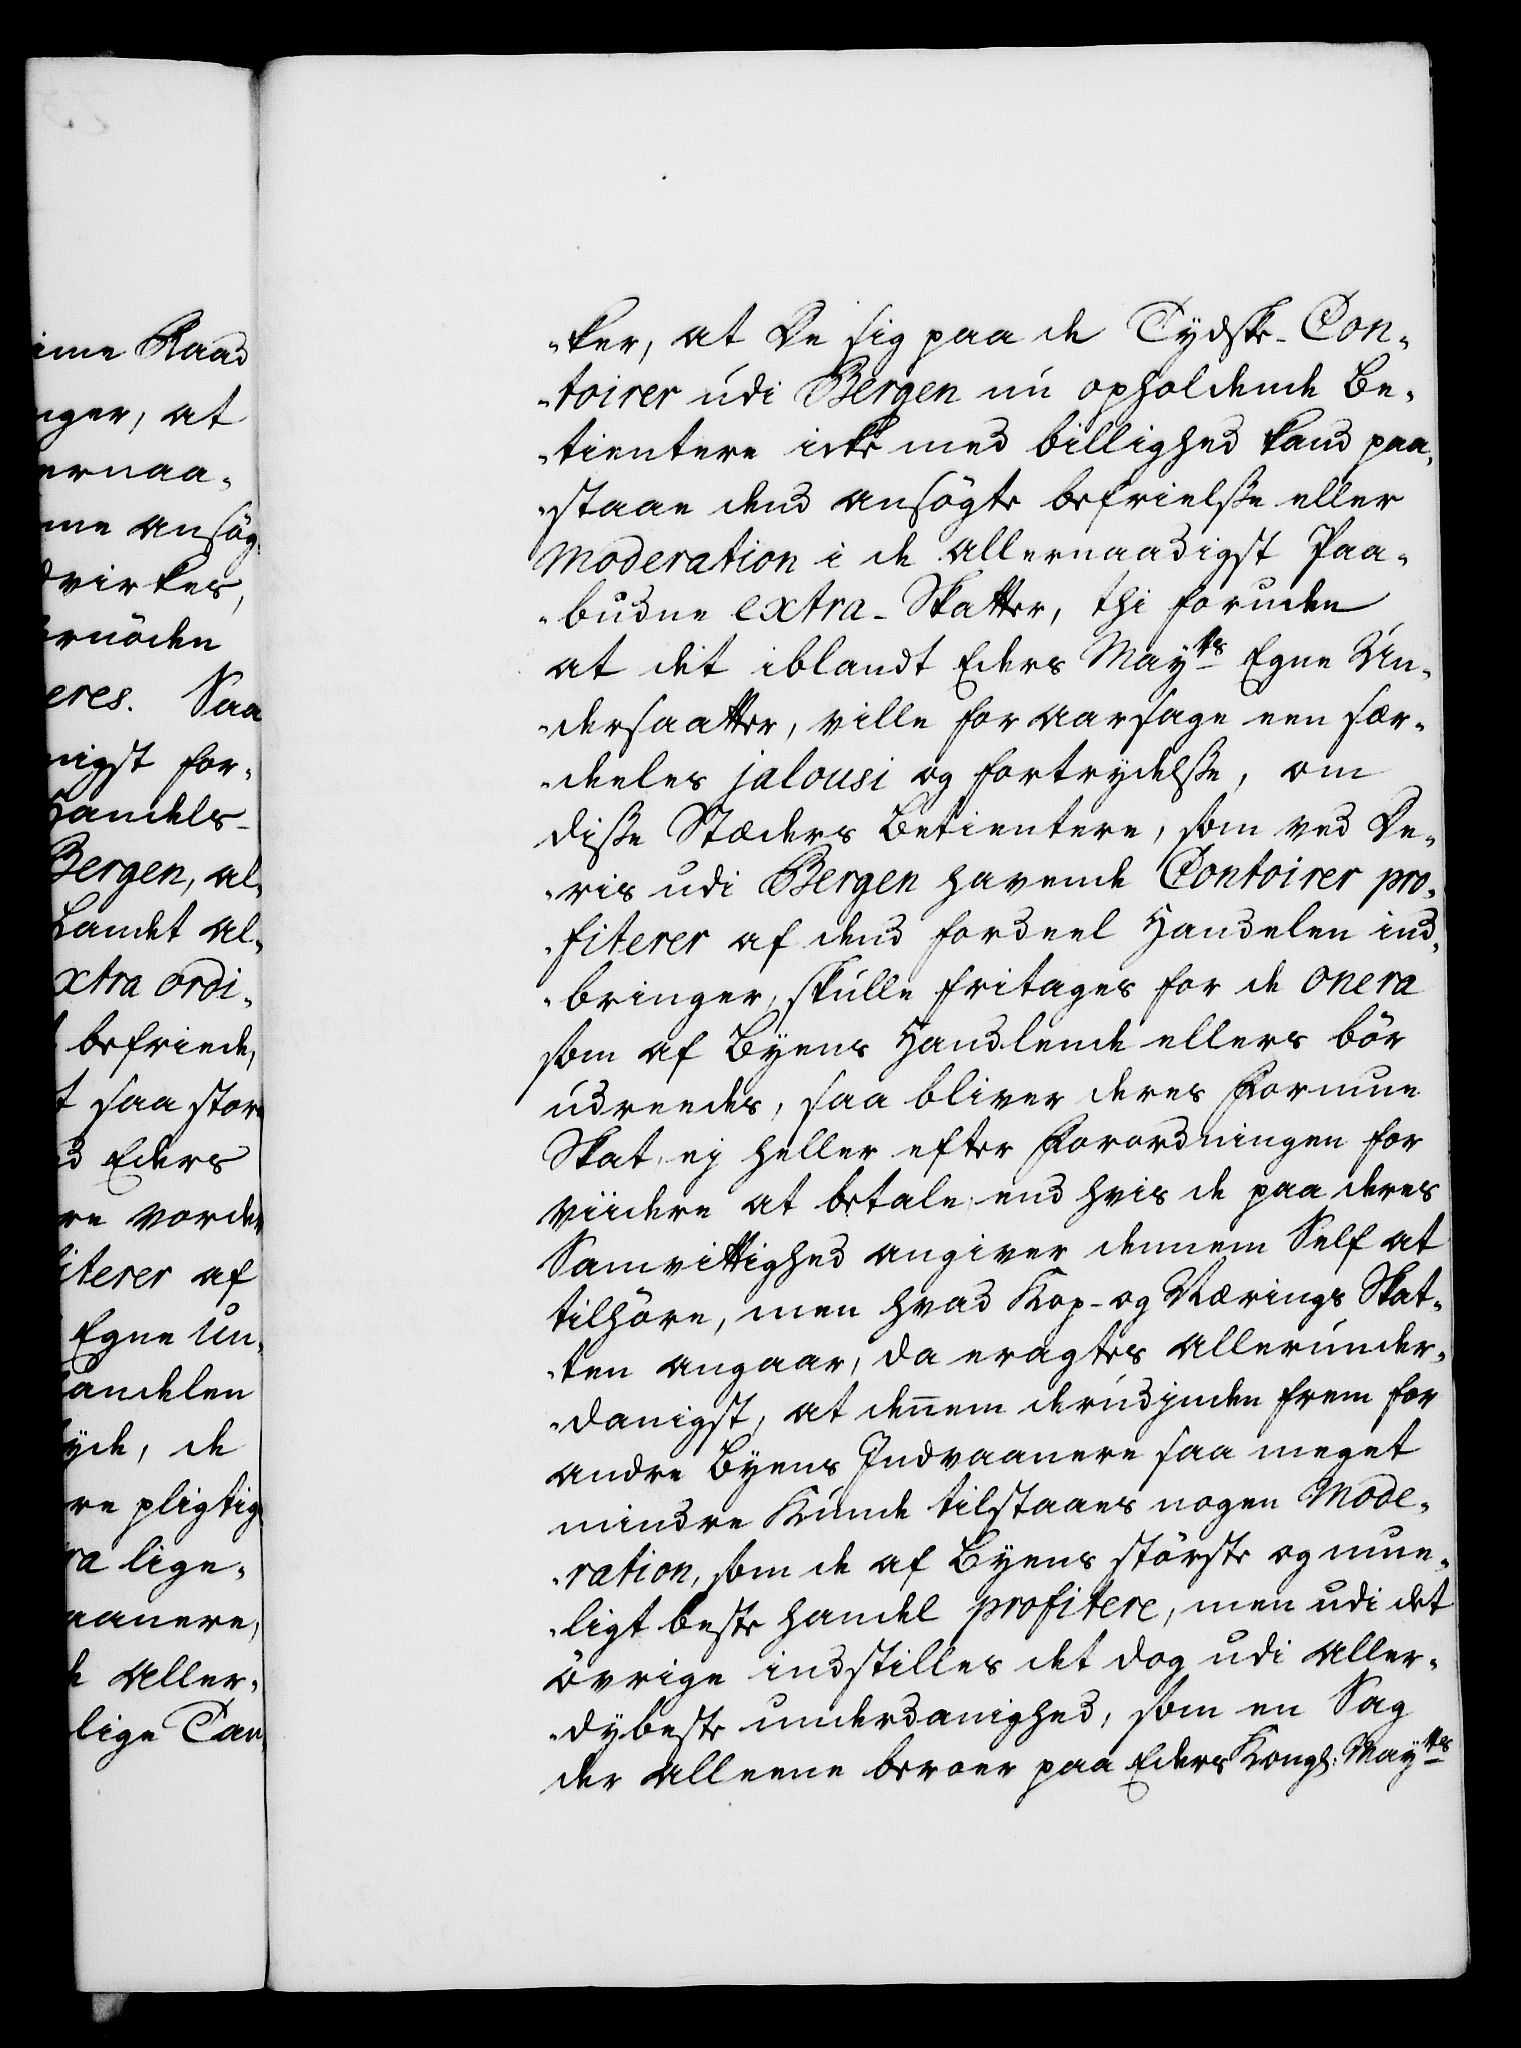 ime Raad
nger, at
ernaa-
me ansög-
dvirkes,
rnöden
eres. Saa
nigst for-
Handels-
Bergen, al-
Landet al-
xtra ordi-
befriede,
t saa store
d Eders
re vorden
iterer af
Egne Un-
andelen
yde, de
re pligtig
ra lige-
aanere,
Aller-
lige Tar-
-ker, at De sig paa de Tydske-Con-
-toirer udi Bergen nu opholdende Be-
-tientere icke med billighed kand paa-
-staae dend ansögte befrielsse eller
Moderation i de allernaadigst Paa-
-budne extra-Skatter, thi foruden
at det iblandt Eders Mayts Egne Un-
-dersaatter, ville foraarsage een sær-
-deeles jalousi og fortrydelsse, om
disse Stæders Betientere, som ved De-
-ris udi Bergen havende Contoirer pro-
-fiterer af dend fordeel Handelen ind-
-bringer, skulle fritages for de onera
som af Byens Handlende ellers bör
udreedes, saa bliver deres Formue
Skat, ej heller efter Forordningen for
viidere at betale, end hvis de paa deres
Samvittighed angiver dennem Self at
tilhöre, men hvad Kop- og Nærings Skat-
-ten angaar, da eragtes allerunder-
-danigst, at dennem derudjnden frem for
andre Byens Indvaanere saa meget
mindre Kunde tilstaaes nogen Mode-
-ration, som de af Byens störste og mue-
-ligt beste handel profitere, men udi det
övrige indstilles det dog udi aller-
-dybeste underdanighed, som en Sag
der alleene beroer paa Eders Kongl: Mayts